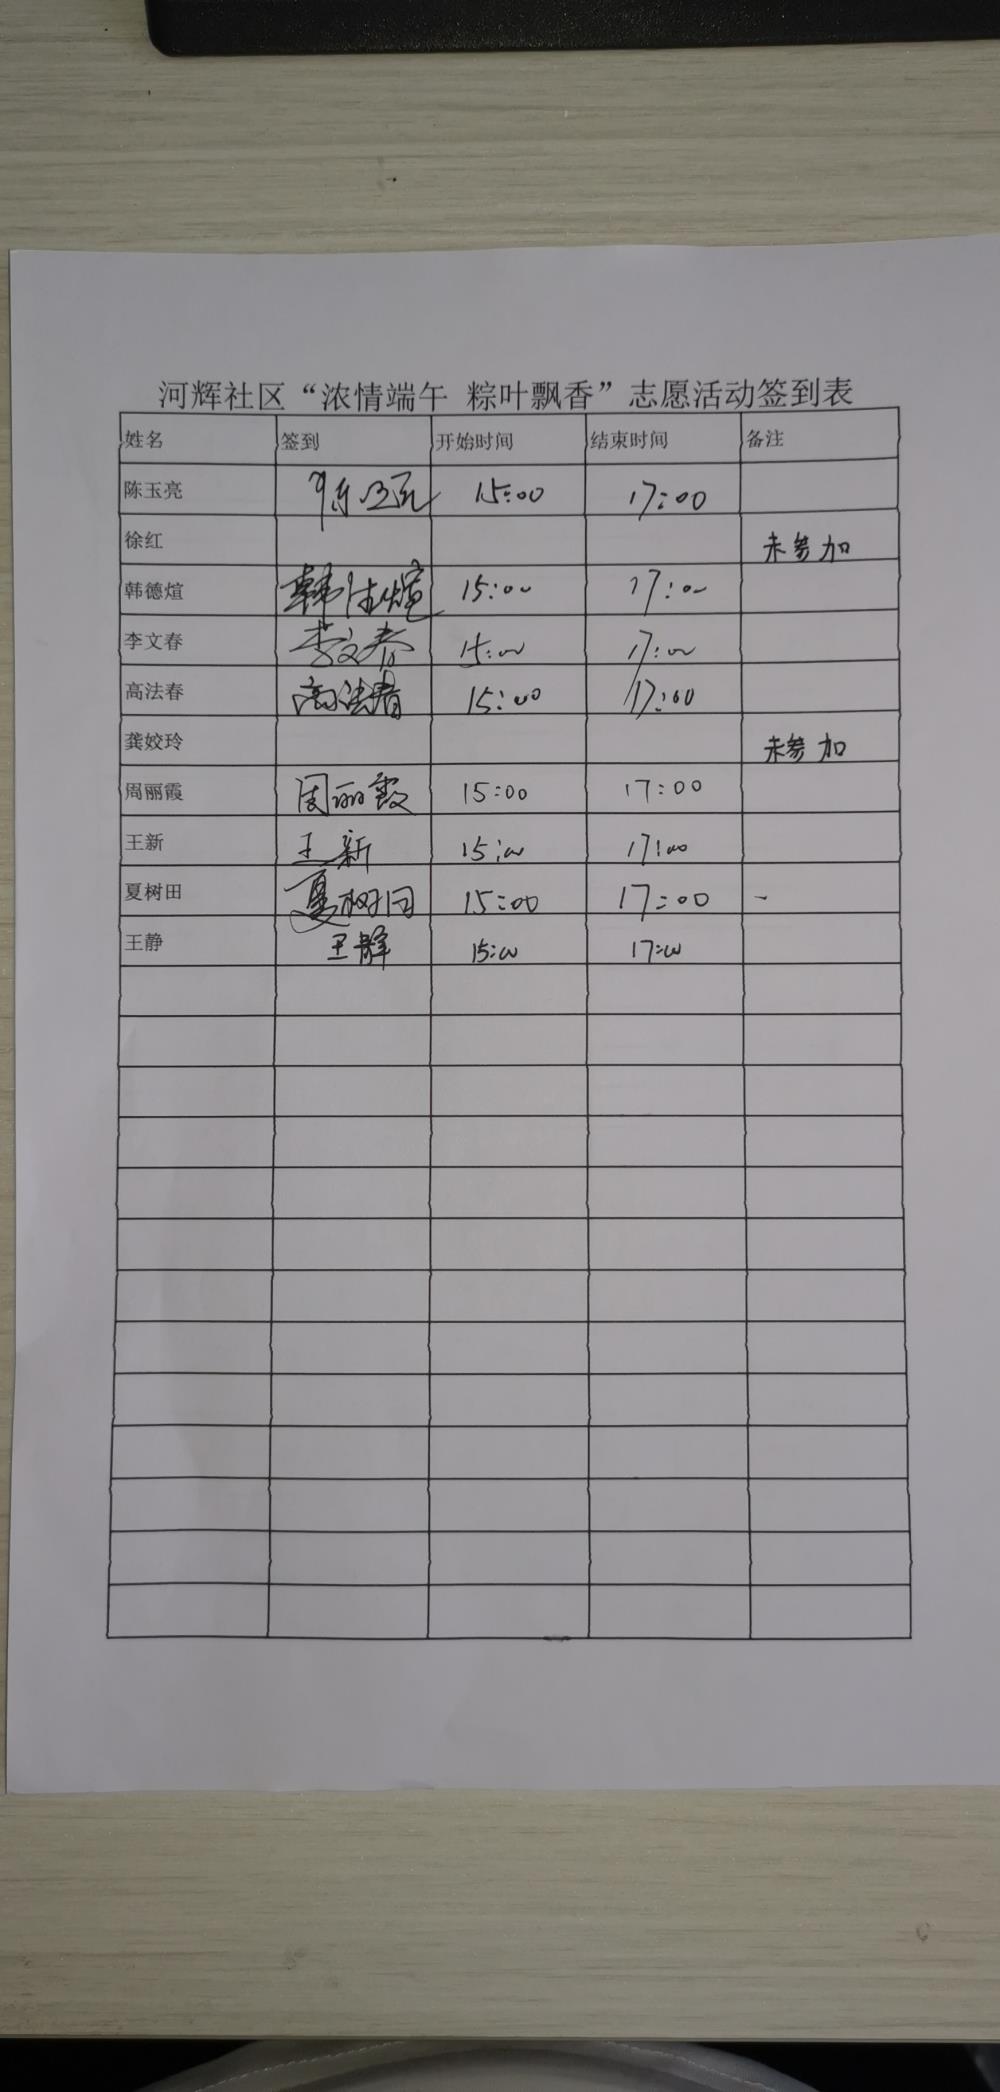 河辉社区“浓情端午 粽叶飘香”志愿活动签到表
姓名 签到 开始时间 结束时间 备注
陈玉亮 陈玉亮 15:00 17:00
徐红 未参加
韩德煊 韩德煊 15:00 17:00
李文春 李文春 15:00 17:00
高法春 高法春 15:00 17:00
龚姣玲 未参加
周丽霞 周丽霞 15:00 17:00
王新 王新 15:00 17:00
夏树田 夏树田 15:00 17:00
王静 王静 15:00 17:00